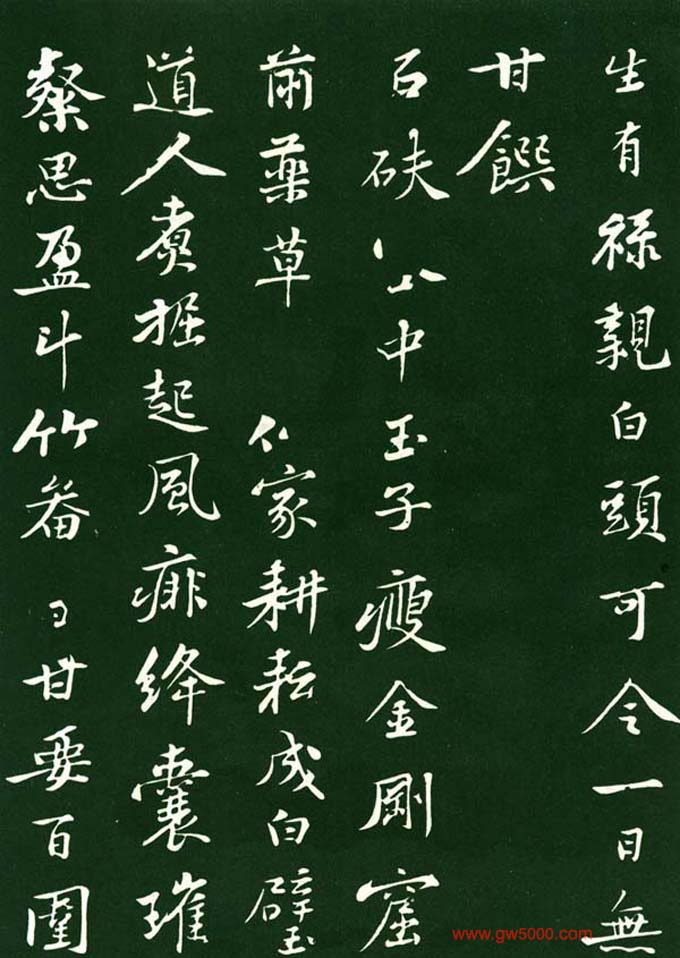 生有祿親白頭可令一日無
甘饌
石砆中玉子瘦金剛窟
前藥草家耕耘成白璧
道人煮掘起風痱絳囊璀
粲思盈斗竹畚甘要百圍
www.gw5000.com